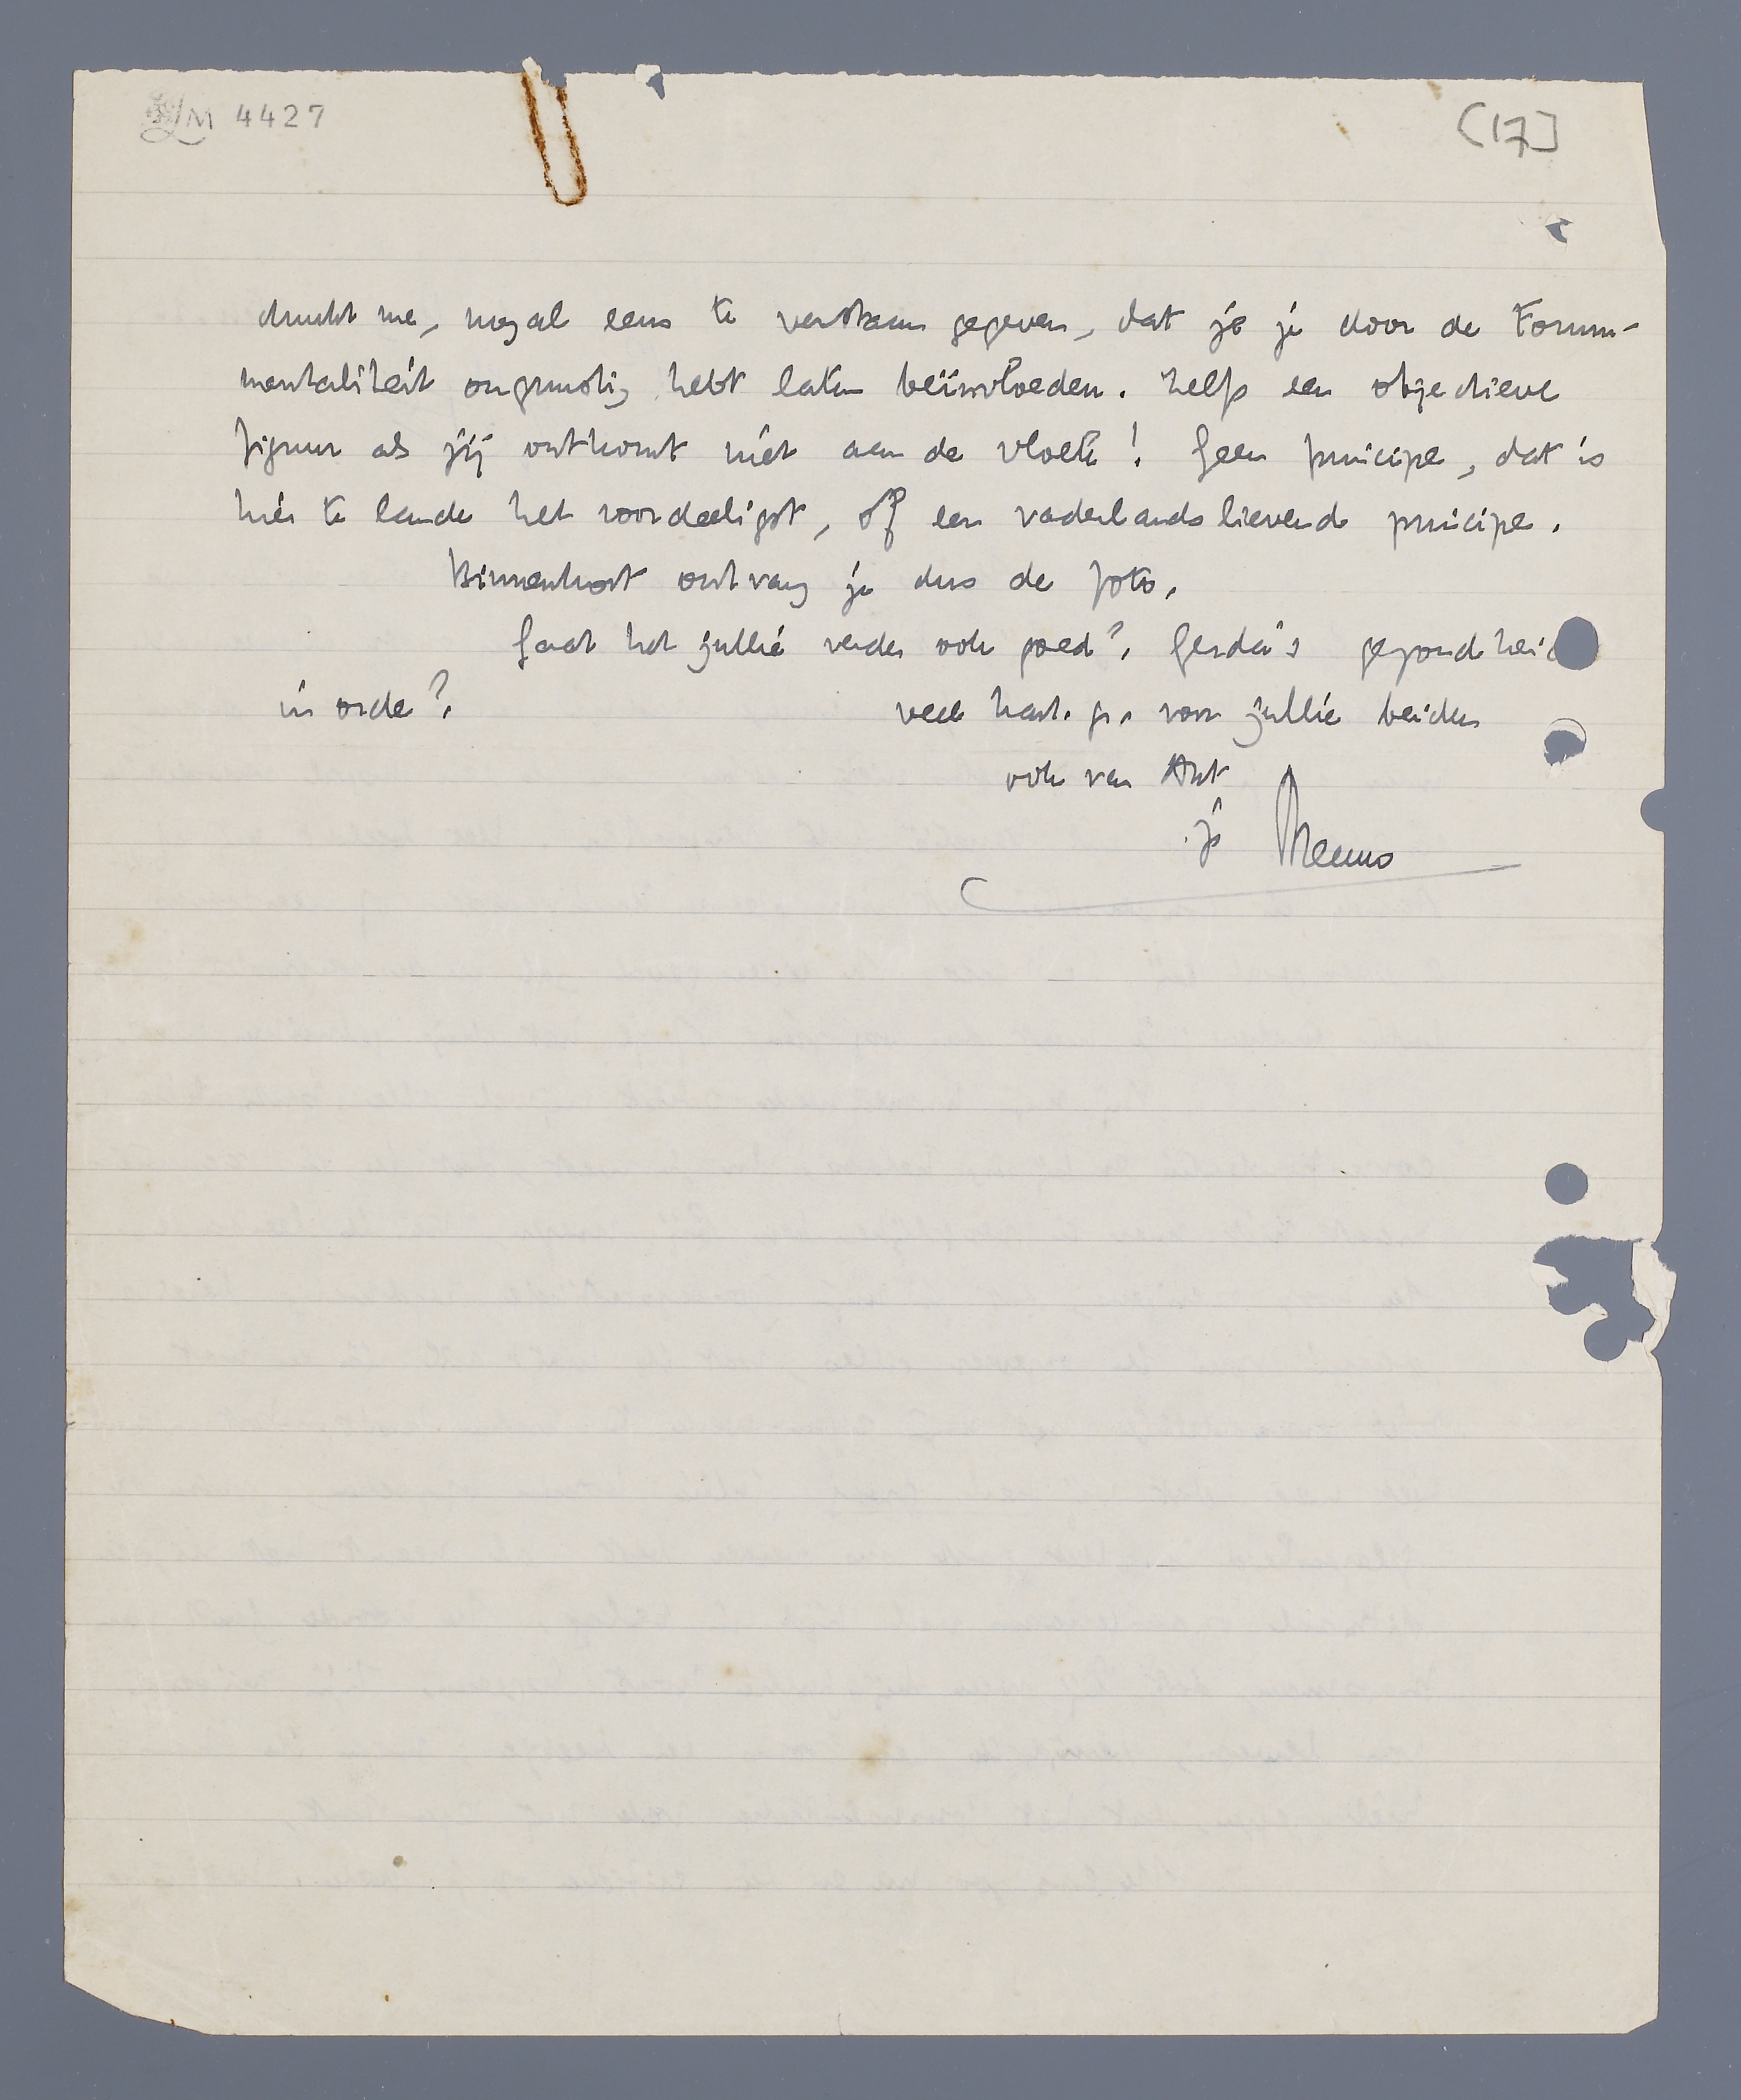 LM 4427
[17]
dunkt me, nogal eens te verstaan gegeven, dat je je door de Forum-
mentaliteit ongunstig hebt laten beïnvloeden. Zelfs een objectieve
figuur als jij ontkomt niet aan de vloek! Geen principe, dat is
hier te lande het voordeeligst, òf een vaderlandslievende principe.
Binnenkort ontvang je dus de foto.
Gaat het jullie verder ook goed?. Gerda's gezondheid
in orde?.
veel hart. gr. voor jullie beiden
ook van Ant
je Menno